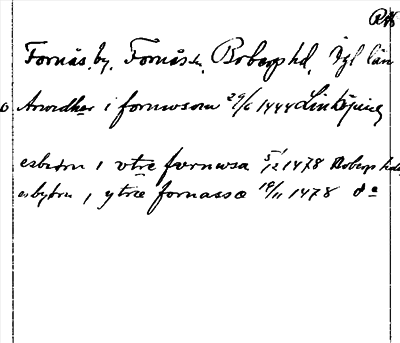 RAS
Fornås, by, Fornåsa sn, Bobergs hd, Ögl län
o Arwidher i fornwsom 29/6 1444 Linköping
esbiörn i vtre fornwsa 5/12 1478 Bobergs hds
esbyörn, i ytræ fornassæ 19/11 1478 do